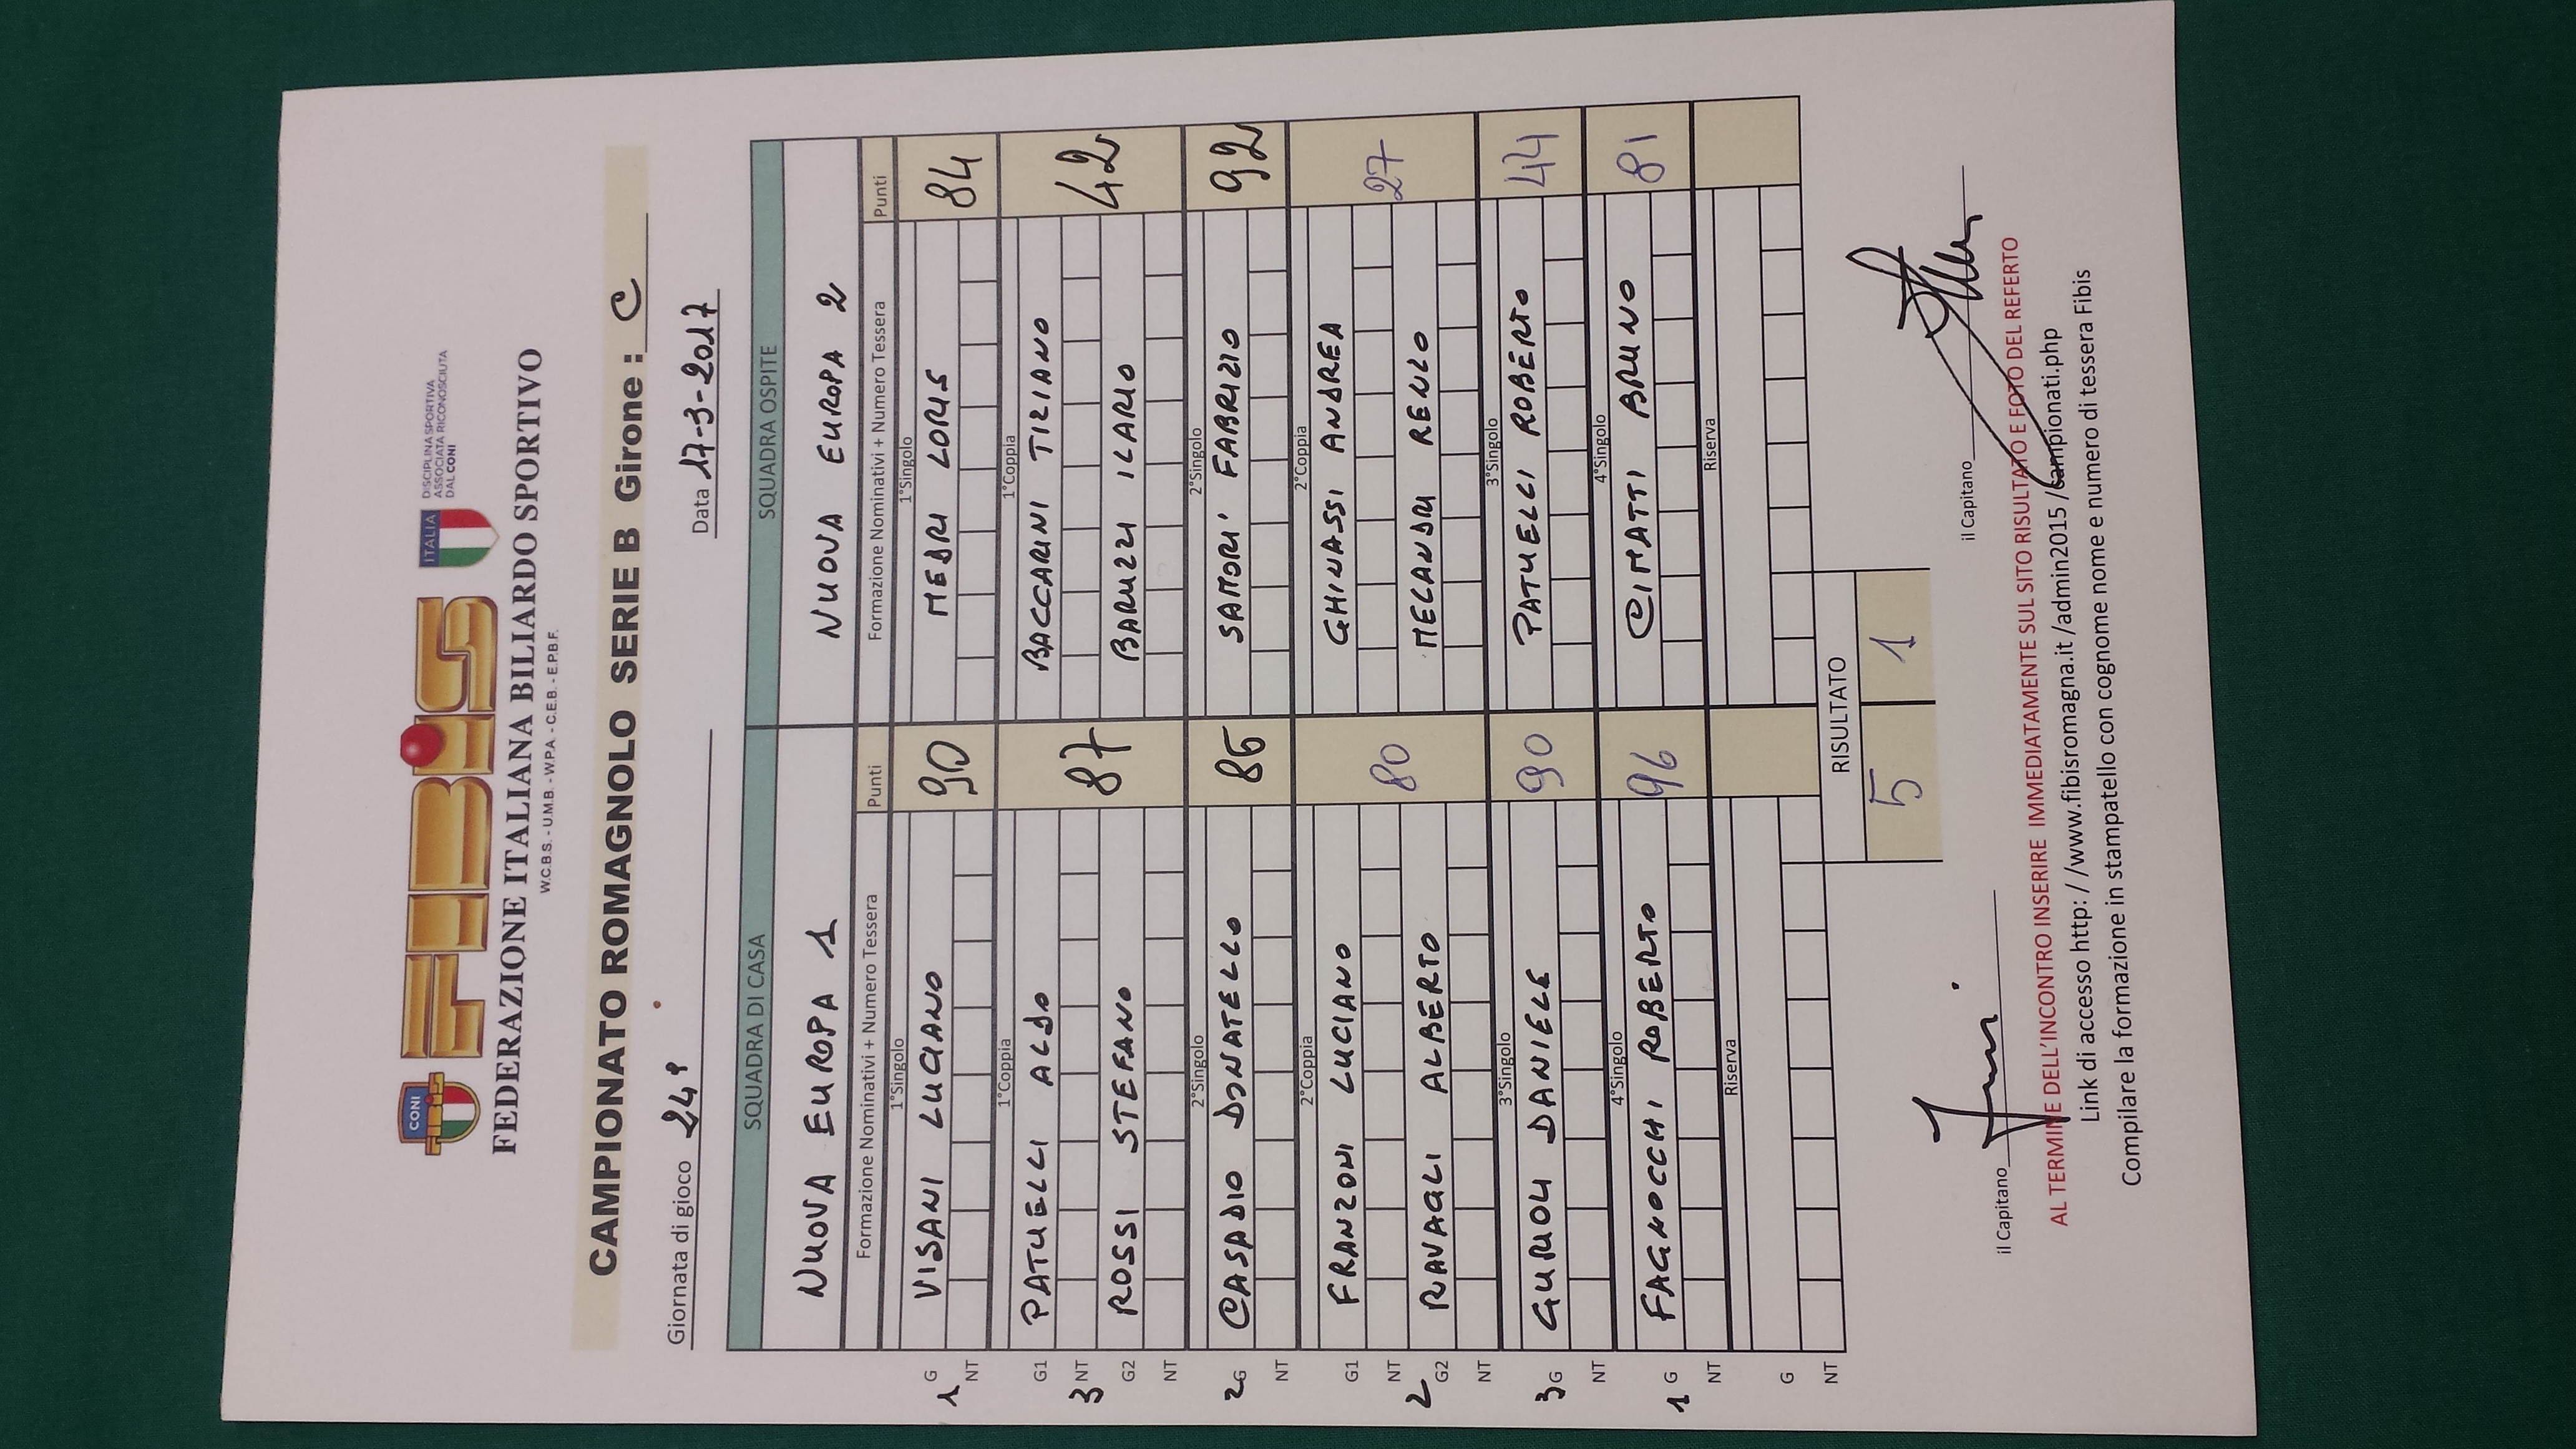 CONI
FIBIS
ITALIA
DISCIPLINA SPORTIVA
ASSOCIATA RICONOSCIUTA
DAL CONI
FEDERAZIONE ITALIANA BILIARDO SPORTIVO
W.C.B.S. - U.M.B. - W.P.A. - C.E.B. - E.P.B.F.
CAMPIONATO ROMAGNOLO SERIE B Girone : C
Giornata di gioco 24° Data 17-3-2017
SQUADRA DI CASA SQUADRA OSPITE
NUOVA EUROPA 1 NUOVA EUROPA 2
Formazione Nominativi + Numero Tessera Punti Formazione Nominativi + Numero Tessera Punti
1°Singolo 1°Singolo
1 G VISANI LUCIANO 90 MEDRI LORIS 84
NT
1°Coppia 1°Coppia
G1 PATUELLI ALDO BACCARINI TIZIANO
3 NT 87 42
G2 ROSSI STEFANO BARUZZI ILARIO
NT
2°Singolo 2°Singolo
2 G CASADIO DONATELLO 86 SANTORI' FABRIZIO 92
NT
2°Coppia 2°Coppia
G1 FRANZONI LUCIANO GHINASSI ANDREA
NT 80 27
2 G2 RAVAGLI ALBERTO MELANDRI RENZO
NT
3°Singolo 3°Singolo
3 G GURIOLI DANIELE 90 PATUELLI ROBERTO 44
NT
4°Singolo 4°Singolo
1 G FAGNOCCHI ROBERTO 96 CIMATTI BRUNO 81
NT
Riserva Riserva
G
NT
RISULTATO
5 1
il Capitano il Capitano
AL TERMINE DELL'INCONTRO INSERIRE IMMEDIATAMENTE SUL SITO RISULTATO E FOTO DEL REFERTO
Link di accesso http: / /www.fibisromagna.it /admin2015 /campionati.php
Compilare la formazione in stampatello con cognome nome e numero di tessera Fibis